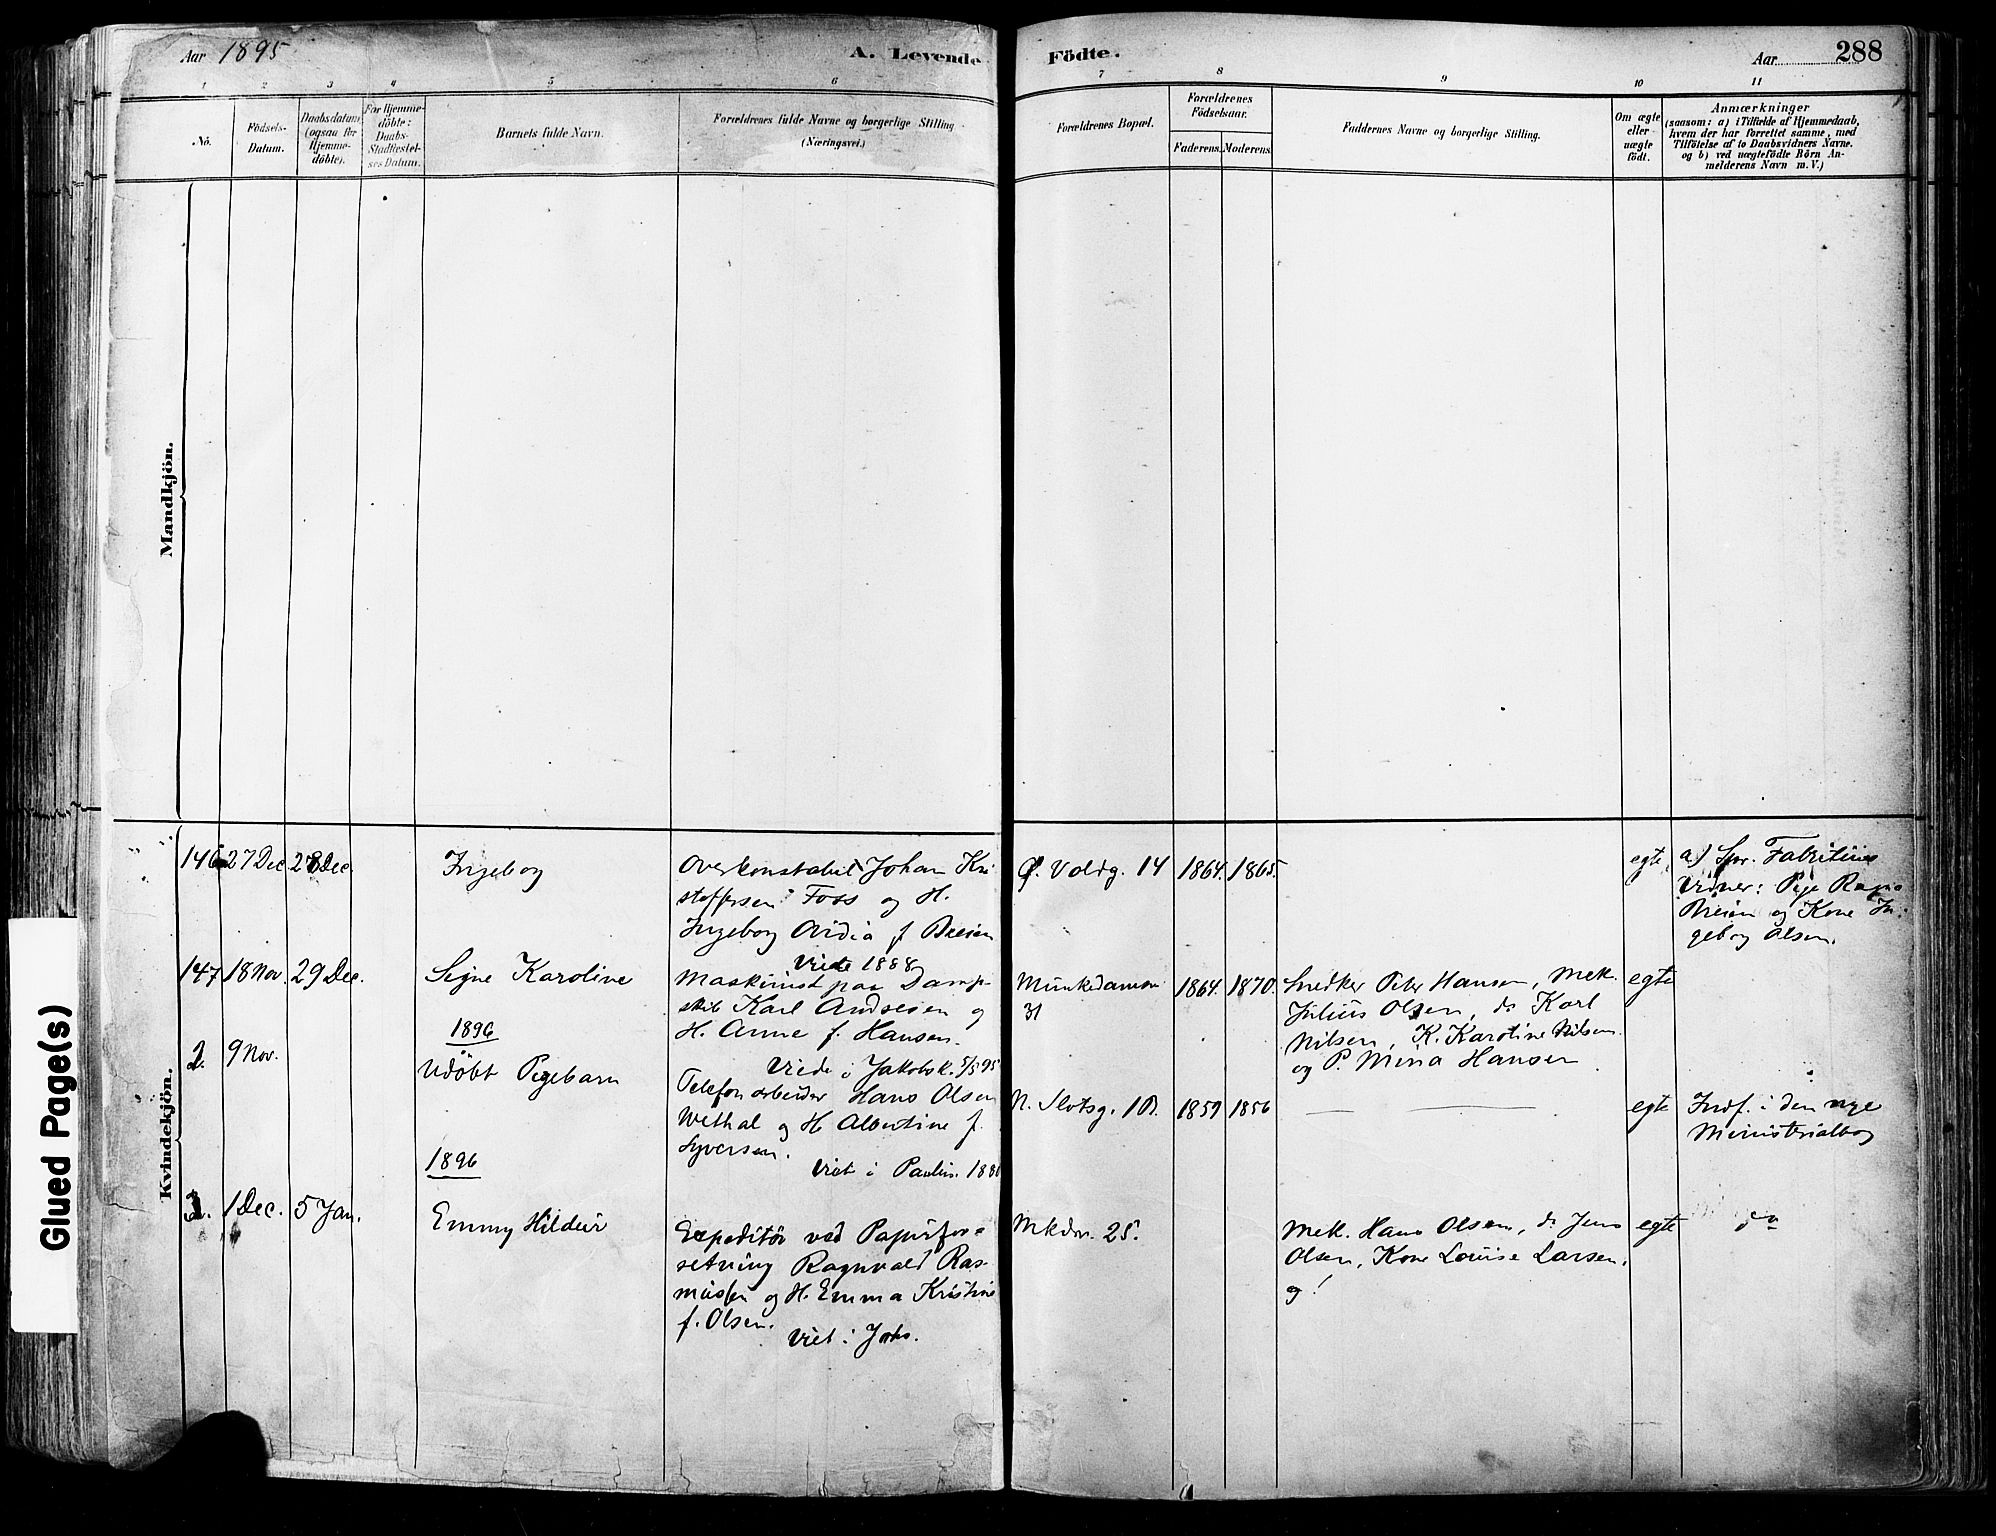 Aar 1895
A. Levende
Födte.
Aar 288
1 2 3 4 5 6 7 8 9 10 11
No.
Födsels-
Datum.
Daabsdatum
(ogsaa for
Hjemme-
döbte).
For Hjemme-
döbte:
Daabs-
Stadfæstel-
ses Datum.
Barnets fulde Navn.
Forældrenes fulde Navne og borgerlige Stilling
(Næringsvei.)
Forældrenes Bopæl.
Forældrenes
Födselsaar.
Faderens.
Moderens.
Faddernes Navne og borgerlige Stilling.
Om ægte
eller
uægte
födt.
Anmærkninger
(saasom: a) i Tilfælde af Hjemmedaab,
hvem der har forrettet samme, med
Tilföielse af to Daabsvidners Navne.
og b) ved uægtefödte Börn An-
melderens Navn m. V.)
Mandkjön.
Kvindekjön.
Glued Page(s)
146 27 Dec 28 Dec.
Ingeborg
Overkonstabel Johan Kri
stoffersen Foss og H.
Ingeborg Ovidia f Breien
Viede 1888
Ø. Voldg. 14
1864. 1865.
egte
a) Spr. Fabritius
Vidner: Pige Ragna
Breien og Kone In
geborg Olsen.
147 18 Nov. 29 Dec.
Signe Karoline
Maskinist paa Damp-
skib Karl Andresen og
H. Anne f. Hansen.
Viede i Jakobsk. 5/5 95
Munkedamsv.
31
1864. 1870.
Snedker Peter Hansen, Mek.
Julius Olsen, do Karl
Nilsen, K. Karoline Nilsen
og P. Mina Hansen
egte
1896
2. 9 Nov.
Udöbt Pigebarn
Telefonarbeider Hans Olsen
Wethal og H. Albertine f.
Syversen.
Viet i Paulus. 188
N. Slotsg. 1B.
1859 1856
egte
Indf. i den nye
Ministerialbog
1896
3. 1 Dec. 5 Jan.
Emmy Hildur
Expeditör ved Papirfor=
retning Ragnvald Ras-
mussen og H. Emma Kristine
f. Olsen.
Viet i Johs.
Mkdv. 25.
Mek. Hans Olsen, do Jens
Olsen, Kone Louise Larsen,
og!
egte
do